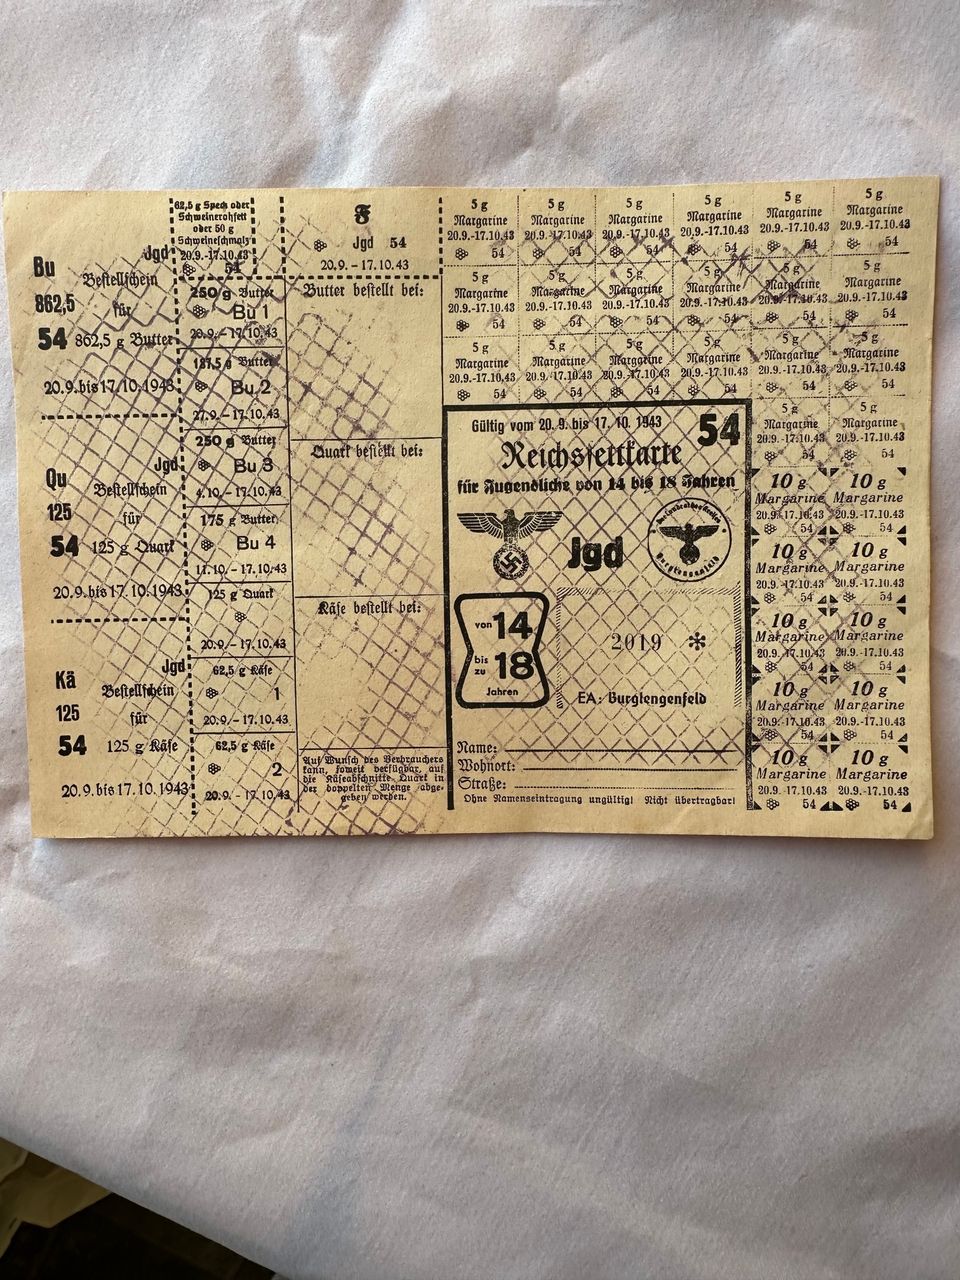 Bu
862,5
54
Jgd
Bestellschein
für
862,5 g Butter
20.9.bis 17.10.1943
Qu
125
54
Jgd
Bestellschein
für
125 g Quark
20.9.bis 17.10.1943
Kä
125
54
Jgd
Bestellschein
für
125 g Käse
20.9.bis 17.10.1943
62,5 g Speck oder
Schweinerohfett
oder 50 g
Schweineschmalz
20.9.-17.10.43
54
250 g Butter
Bu 1
20.9.-17.10.43
187,5 g Butter
Bu 2
27.9.-17.10.43
250 g Butter
Bu 3
4.10.-17.10.43
175 g Butter
Bu 4
11.10.-17.10.43
125 g Quark
20.9.-17.10.43
62,5 g Käse
1
20.9.-17.10.43
62,5 g Käse
2
20.9.-17.10.43
F
Jgd 54
20.9.-17.10.43
Butter bestellt bei:
Quark bestellt bei:
Käse bestellt bei:
Auf Wunsch des Verbrauchers
kann, soweit verfügbar, auf
die Käseabschnitte Quark in
der doppelten Menge abge-
geben werden.
5 g 5 g 5 g 5 g 5 g 5 g
Margarine Margarine Margarine Margarine Margarine Margarine
20.9.-17.10.43 20.9.-17.10.43 20.9.-17.10.43 20.9.-17.10.43 20.9.-17.10.43 20.9.-17.10.43
54 54 54 54 54 54
5 g 5 g 5 g 5 g 5 g 5 g
Margarine Margarine Margarine Margarine Margarine Margarine
20.9.-17.10.43 20.9.-17.10.43 20.9.-17.10.43 20.9.-17.10.43 20.9.-17.10.43 20.9.-17.10.43
54 54 54 54 54 54
5 g 5 g 5 g 5 g 5 g 5 g
Margarine Margarine Margarine Margarine Margarine Margarine
20.9.-17.10.43 20.9.-17.10.43 20.9.-17.10.43 20.9.-17.10.43 20.9.-17.10.43 20.9.-17.10.43
54 54 54 54 54 54
Gültig vom 20. 9. bis 17. 10. 1943
54
Reichsfettkarte
für Jugendliche von 14 bis 18 Jahren
Jgd
Burglengenfeld
von 14
bis zu 18
Jahren
2019 *
EA: Burglengenfeld
Name:
Wohnort:
Straße:
Ohne Namenseintragung ungültig! Nicht übertragbar!
5 g 5 g
Margarine Margarine
20.9.-17.10.43 20.9.-17.10.43
54 54
10 g 10 g
Margarine Margarine
20.9.-17.10.43 20.9.-17.10.43
54 54
10 g 10 g
Margarine Margarine
20.9.-17.10.43 20.9.-17.10.43
54 54
10 g 10 g
Margarine Margarine
20.9.-17.10.43 20.9.-17.10.43
54 54
10 g 10 g
Margarine Margarine
20.9.-17.10.43 20.9.-17.10.43
54 54
10 g 10 g
Margarine Margarine
20.9.-17.10.43 20.9.-17.10.43
54 54